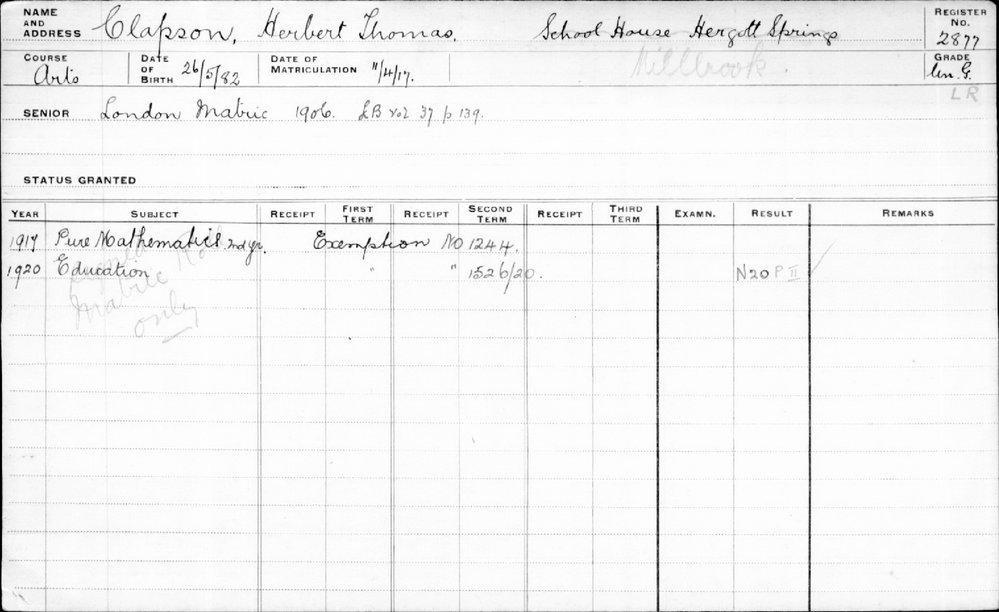 NAME AND ADDRESS Clapson, Herbert Thomas. School House Hergott Springs REGISTER No. 2877
Millbrook.
COURSE Arts DATE OF BIRTH 26/5/82 DATE OF MATRICULATION 11/4/17. GRADE Un. G.
LR
SENIOR London Matric 1906. LB vol 37 p 139.
STATUS GRANTED
YEAR SUBJECT RECEIPT FIRST TERM RECEIPT SECOND TERM RECEIPT THIRD TERM EXAMN. RESULT REMARKS
1917 Pure Mathematics 2nd yr. Exemption No 1244.
1920 Education " " 1526/20. N20 P II
Signed Matric Roll only